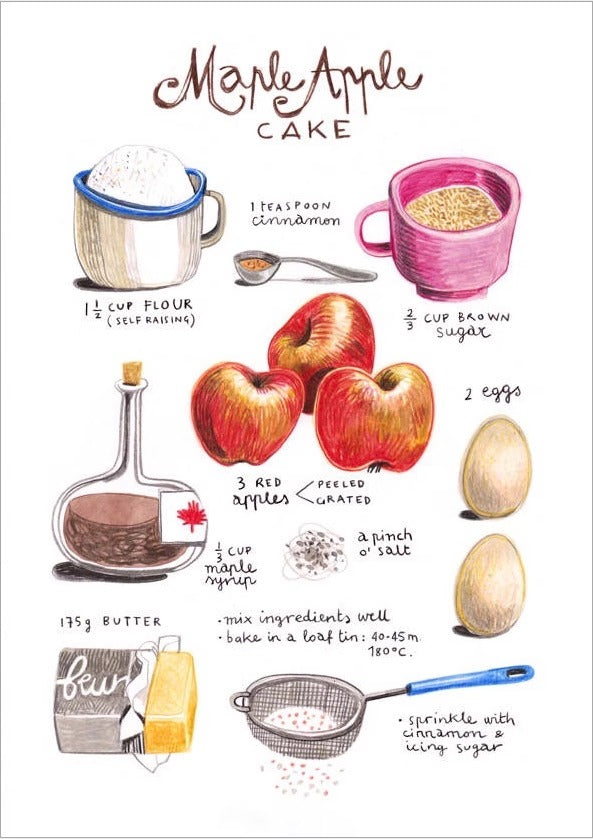 Maple Apple
CAKE
1 TEASPOON
cinnamon
1 1/2 CUP FLOUR
(SELF RAISING)
2/3 CUP BROWN
sugar
2 eggs
3 RED
apples
PEELED
GRATED
1/3 CUP
maple
syrup
a pinch
o' salt
175g BUTTER
• mix ingredients well
• bake in a loaf tin: 40-45m.
180°C.
• sprinkle with
cinnamon &
icing sugar